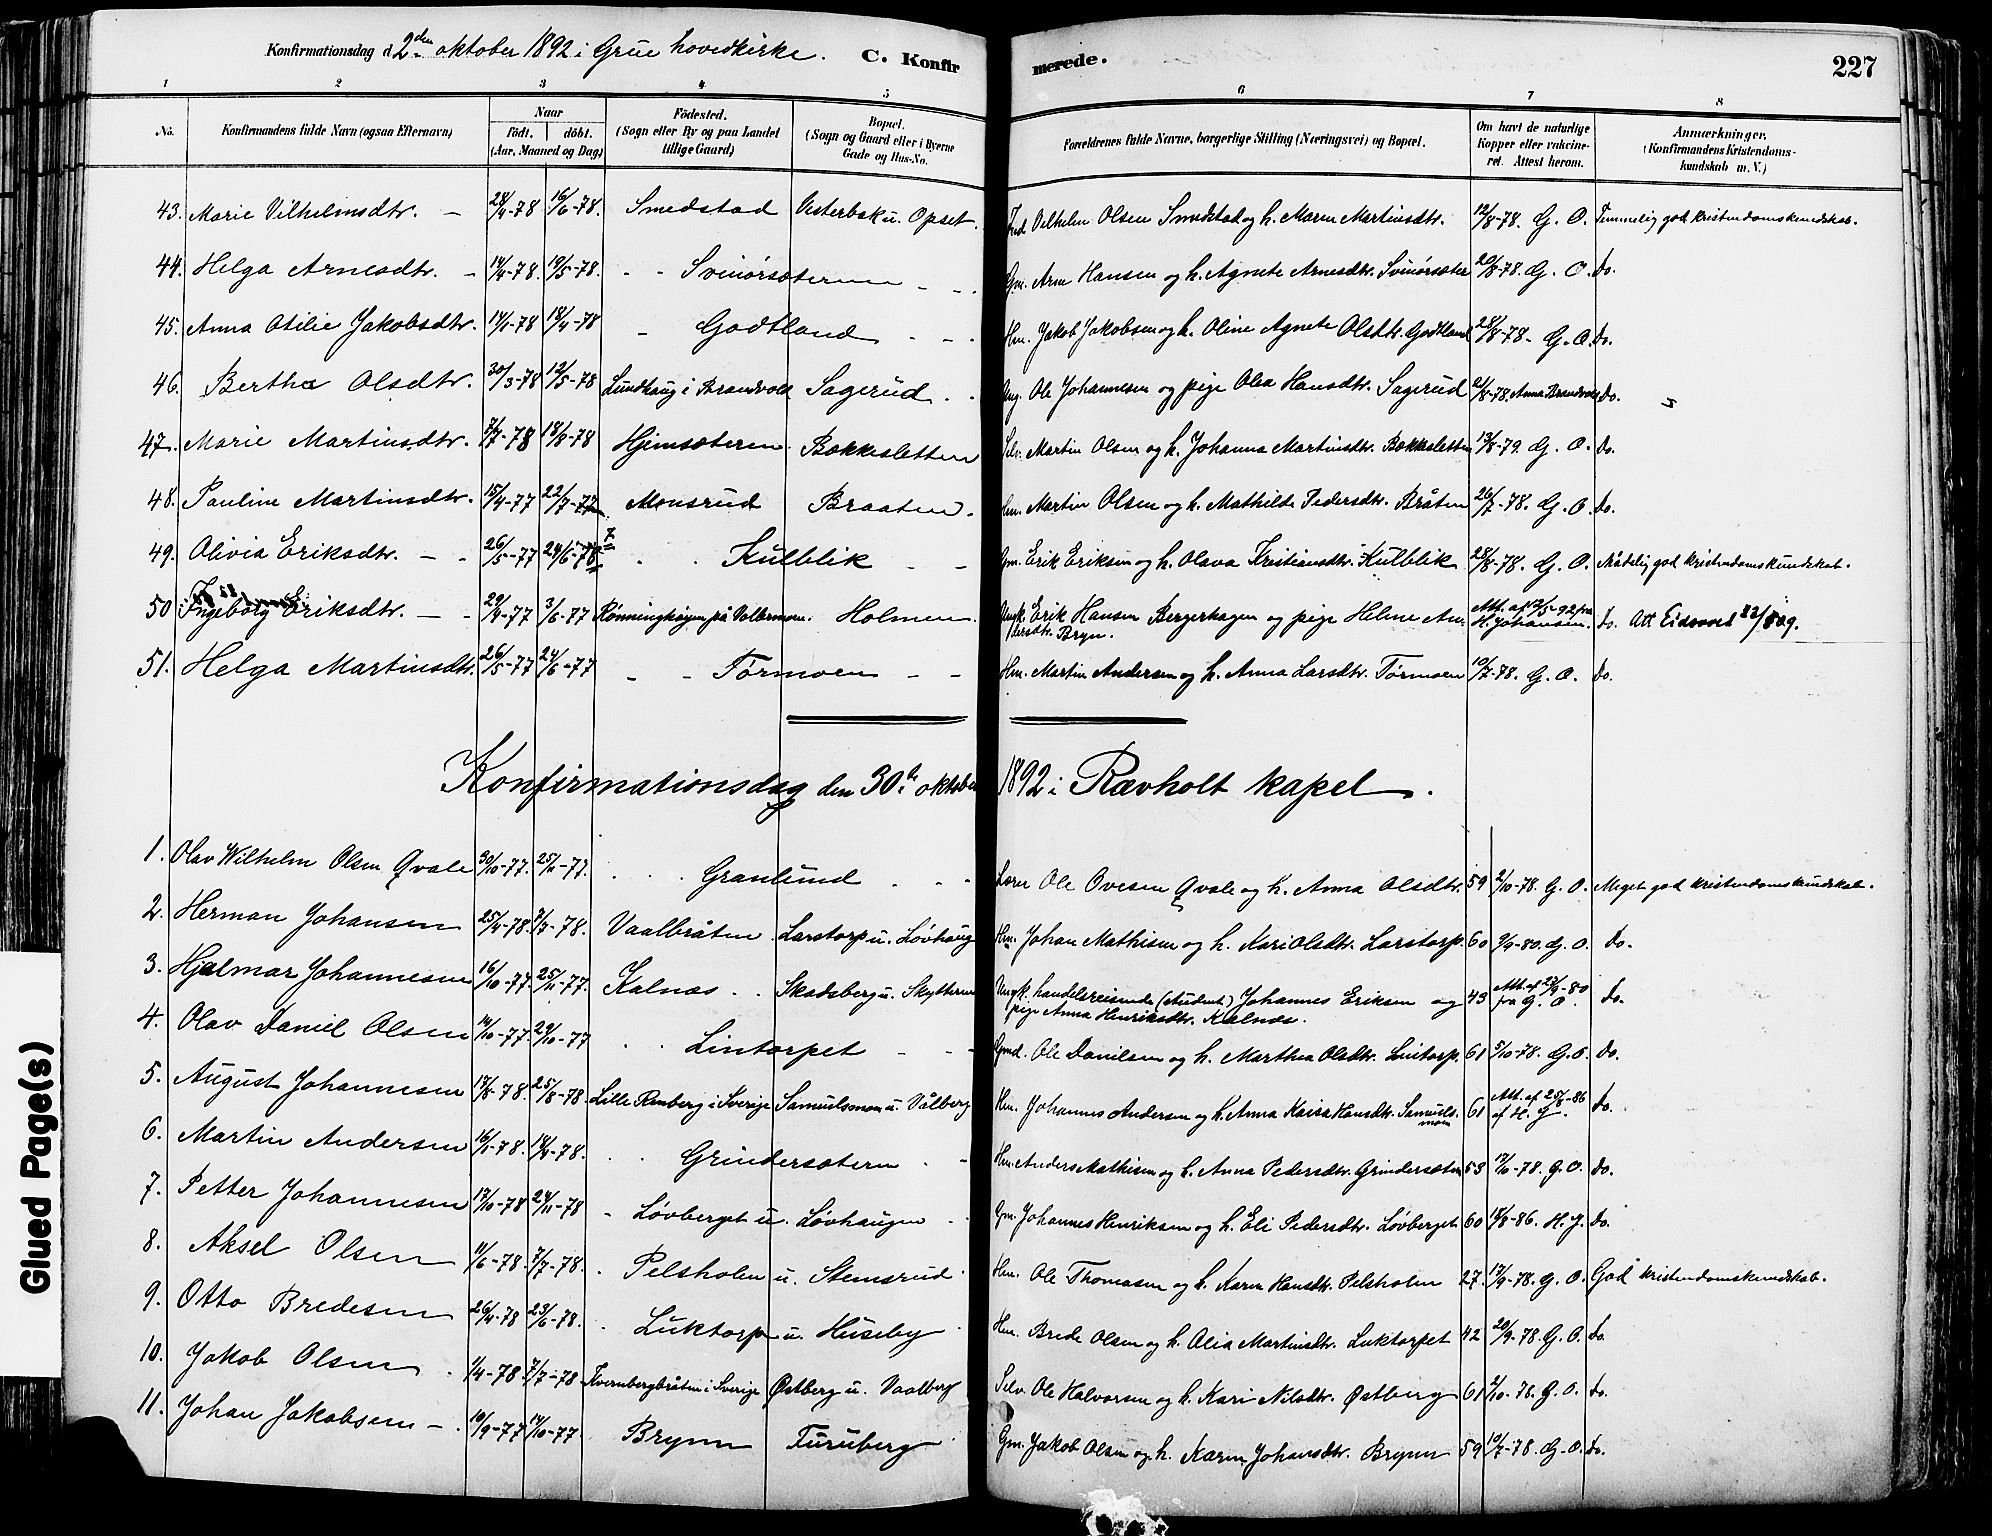 Konfirmationsdag d 2den oktober 1892 i Grue hovedkirke. C. Konfir merede. 227
1 2 3 4 5 6 7 8
No. Konfirmandens fulde Navn (ogsaa Efternavn) Naar födt. döbt. (Aar, Maaned og Dag) Födested. (Sogn eller By og paa Landet tillige Gaard) Bopæl. (Sogn og Gaard eller i Byerne Gade og Hus-No. Forældrenes fulde Navne, borgerlige Stilling (Næringsvei) og Bopæl. Om havt de naturlige Kopper eller vakcineret. Attest herom. Anmærkninger. (Konfirmandens Kristendomskundskab m. V.)
43. Marie Vilhelmsdtr. 28/4-78 16/6-78. Smedstad Vesterbak u. Opset. Ind. Vilhelm Olsen Smedstad og h. Maren Martinsdtr. 12/8-78. G. O. Temmelig god kristendomskundskab.
44. Helga Arnesdtr. 14/4-78. 19/5-78. Svinörsæteren Gm. Arne Hansen og h. Agnete Arnesdtr. Svinörsæter 20/8-78. G. O. Do.
45. Anna Otilie Jakobsdtr. 14/1-78 18/4-78 Godtland Hm. Jakob Jakobsen og h. Oline Agnete Olsdtr. Godtland 28/8-78. G. O. Do.
46. Bertha Olsdtr. 30/3-78 12/5-78 Lundhaug i Brandvold Sagerud Ung. Ole Johannesen og pige Olea Hansdtr. Sagerud 21/8-78. Anna Brandvold Do.
47. Marie Martinsdtr. 7/7-78 18/8-78 Hjemsæteren Bakkesletten Selv. Martin Olsen og h. Johanna Martinsdtr. Bakkesletten 13/8-79. G. O. Do.
48. Pauline Martinsdtr. 15/4-77 22/7-77 Monsrud Braaten. Hm. Martin Olsen og h. Mathilde Pedersdtr. Bråten 26/7-78. G. O. Do.
49. Olivia Eriksdtr. 26/5-77 24/6-78 7 Kulblik Gm. Erik Eriksen og h. Olava Kristiansdtr. Kulblik 28/8-78. G. O. Nådelig god kristendomskundskab.
50 Ingeborg Eriksdtr. 29/4-77 3/6-77 Rönninghögen på Volbermoen. Holmen. Ungk. Erik Hansen Bergerhagen og pige Helene Andersdtr. Bryn. Att. af 12/5-92 fra H. Johansen. Do. Att Eidsvold 22/8 09.
51. Helga Martinsdtr. 26/5-77 24/6-77 Törmoen Hm. Martin Andersen og h. Anna Larsdtr. Törmoen 10/7-78. G. O. Do.
Konfirmationsdag den 30te oktober 1892 i Rævholt kapel.
1. Olav Wilhelm Olsen Qvale 30/10-77. 25/11-77. Granlund Lærer Ole Ovesen Qvale og h. Anna Olsdtr. 59 2/10-78. G. O. Meget god kristendomskundskab.
2. Herman Johansen 25/4-78. 7/7-78. Vaalbråten Larstorp u. Lövhaug Hm. Johan Mathisen og h. Kari Olsdtr. Larstorp. 60 9/9-80. G. O. Do.
3. Hjalmar Johannesen 16/10-77. 25/11-77. Kalnæs Skadsberg u. Skytteren Ungk. handelsreisende (Student) Johannes Eriksen og pige Anna Henriksdtr. Kalnæs. 43 Att. af 23/9-80 fra G. O. Do.
4. Olav Daniel Olsen 14/10-77. 29/10-77 Lintorpet Gmd. Ole Danielsen og h. Marthea Olsdtr. Lintorp. 61 5/10-78. G. O. Do.
5. August Johannesen 17/8-78. 25/8-78. Lille Ronberg i Sverige Samuelsmon u. Vålberg Hm. Johannes Andersen og h. Anna Kaisa Hansdtr. Samuelsmon 61 Att. af 25/8-86 af H. J. Do.
6. Martin Andersen 16/1-78. 14/4-78. Grindersæteren Hm. Anders Mathisen og h. Anna Pedersdtr. Grindersæteren 53 12/11-78. G. O. Do.
7. Petter Johannesen 17/10-78 24/11-78 Lövberget u. Lövhaugen Gm. Johannes Henriksen og h. Eli Pedersdtr. Lövberget 60 18/8-86. H. J. Do.
8. Aksel Olsen 11/6-78. 7/7-78. Pelsholen u. Stemsrud Hm. Ole Thomasen og h. Karen Hansdtr. Pelsholen 27. 17/9-78. G. O. God kristendomskundskab.
9. Otto Bredesen 26/4-78 23/6-78. Luktorp u. Huseby Hm. Brede Olsen og h. Olia Martinsdtr. Luktorpet 42 20/9-78. G. O. Do.
10. Jakob Olsen 1/4-78. 7/7-78 Kvernbergbråten i Sverige Östberg u. Vaalberg Selv. Ole Halvorsen og h. Kari Nilsdtr. Östberg 61 2/10-78. G. O. Do.
11. Johan Jakobsen 10/9-77 14/10-77. Brynn Furuberg Gm. Jakob Olsen og h. Karen Johansdtr. Brynn 59 10/7-78. G. O. Do.
Glued Page(s)